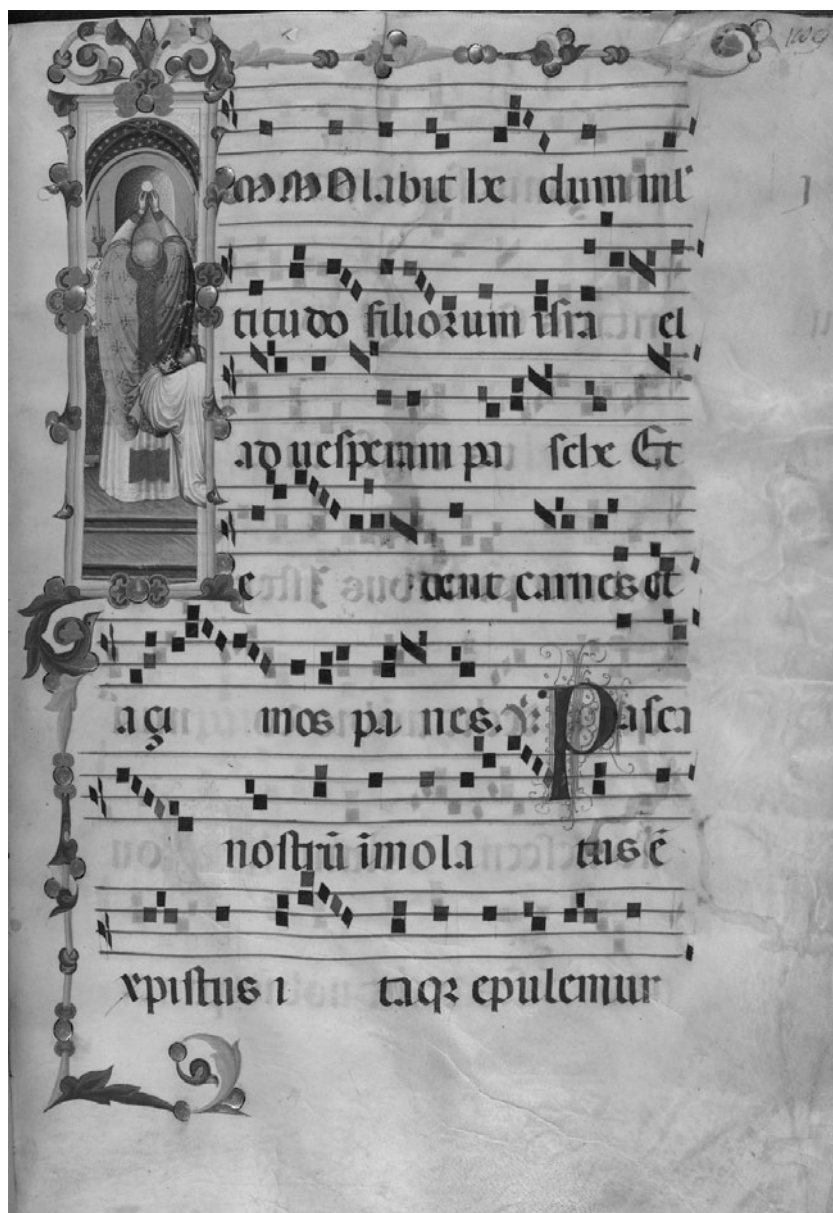 MMOlabit he dum mul
titudo filiorum isra el
ad uesperam pa sche Et
e dent carnes et
açi mos pa nes. ℣. Pasca
nostrū īmola tus ē
xpistus i taqꝫ epulemur